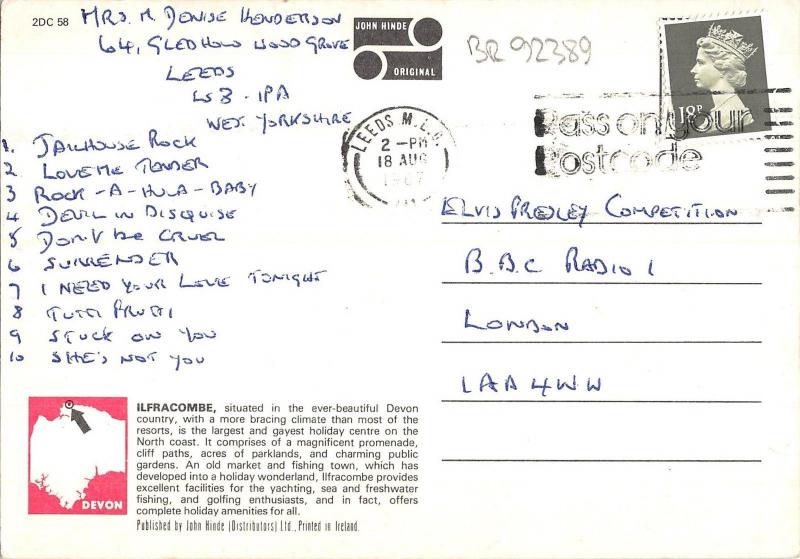 2DC 58
MRS. M. DENISE HENDERSON
64, GLEDHOW WOOD GROVE
LEEDS
LS8 - 1PA
WEST YORKSHIRE
JOHN HINDE
ORIGINAL
BR 92389
18P
LEEDS M.L.O.
2 - PM
18 AUG
Pass on your
Postcode
1. JAILHOUSE ROCK
2 LOVE ME TENDER
3 ROCK - A - HULA - BABY
4 DEVIL IN DISQUISE
5 DON'T BE CRUEL
6 SURRENDER
7 I NEED YOUR LOVE TONIGHT
8 TUTTI FRUTTI
9 STUCK ON YOU
10 SHE'S NOT YOU
ELVIS PRESLEY COMPETITION
B.B.C RADIO 1
LONDON
1AA 4WW
DEVON
ILFRACOMBE, situated in the ever-beautiful Devon
country, with a more bracing climate than most of the
resorts, is the largest and gayest holiday centre on the
North coast. It comprises of a magnificent promenade,
cliff paths, acres of parklands, and charming public
gardens. An old market and fishing town, which has
developed into a holiday wonderland, Ilfracombe provides
excellent facilities for the yachting, sea and freshwater
fishing, and golfing enthusiasts, and in fact, offers
complete holiday amenities for all.
Published by John Hinde (Distributors) Ltd., Printed in Ireland.